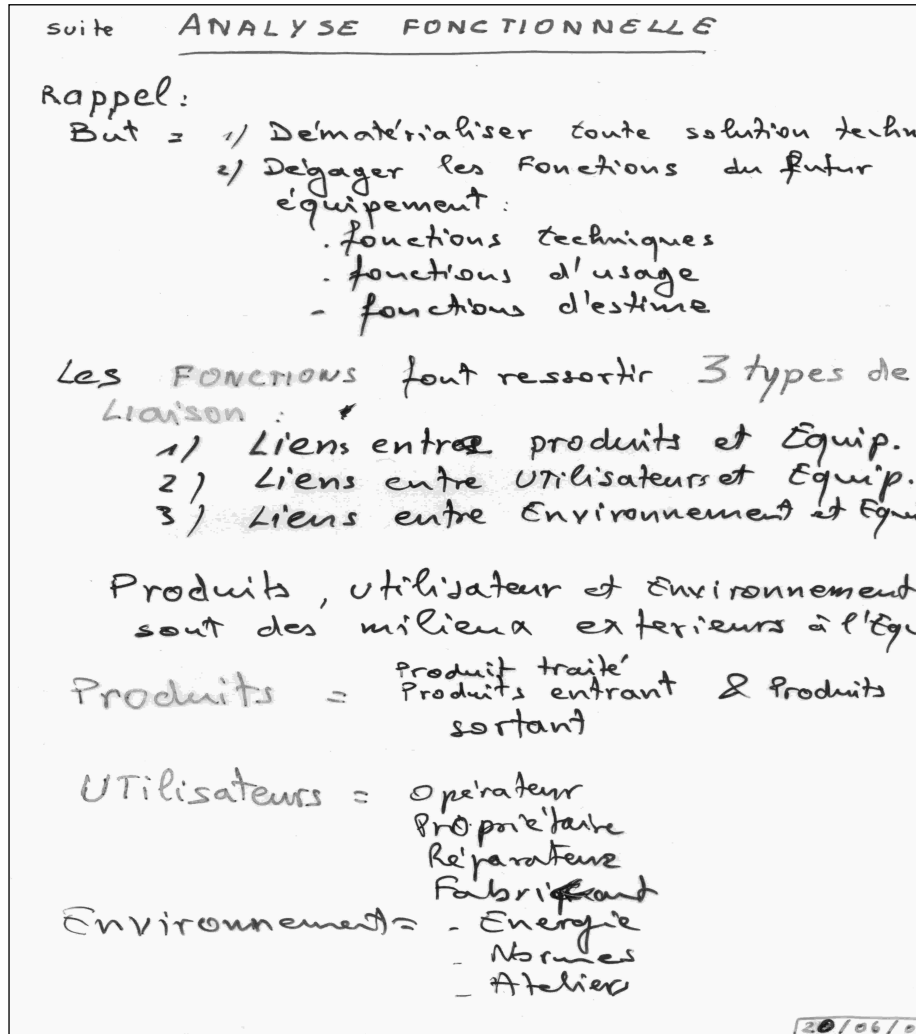 suite ANALYSE FONCTIONNELLE
Rappel :
But = 1) Dématérialiser toute solution techn
2) Dégager les Fonctions du futur
équipement :
. fonctions techniques
. fonctions d'usage
- fonctions d'estime
Les FONCTIONS font ressortir 3 types de
Liaison :
1) Liens entre produits et Equip.
2) Liens entre UTilisateurs et Equip.
3) Liens entre Environnement et Equi
Produits, utilisateur et Environnement
sont des milieux exterieurs à l'Equ
Produit traité
Produits = Produits entrant & Produits
sortant
UTilisateurs = Opérateur
Propriétaire
Réparateur
Fabricant
Environnement = - Energie
- Normes
- Atelier
20/06/0